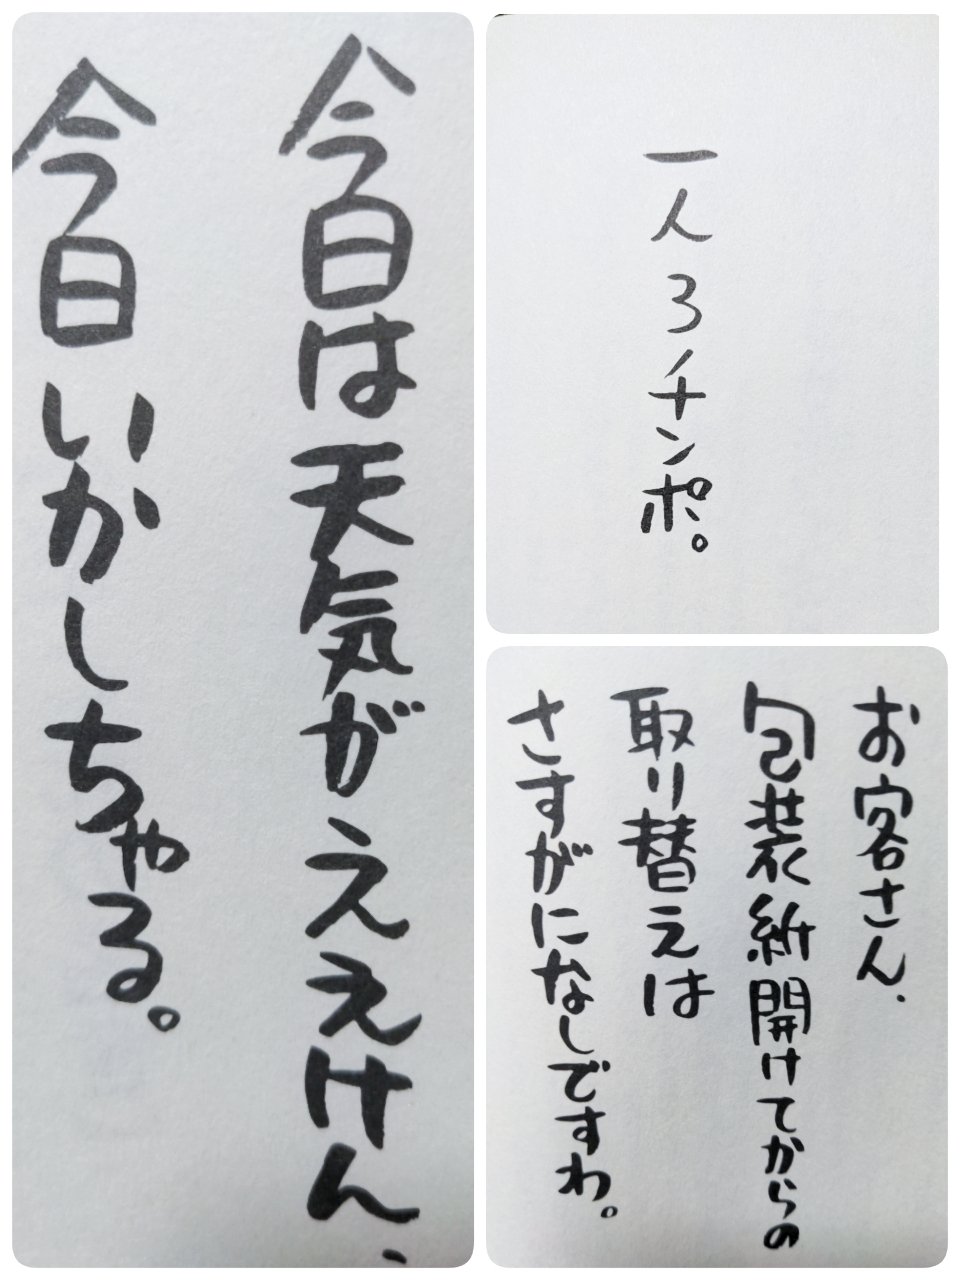 今日は天気がええけん、
今日いかしちゃる。
一人3チンポ。
お客さん、
包装紙開けてからの
取り替えは
さすがになしですわ。